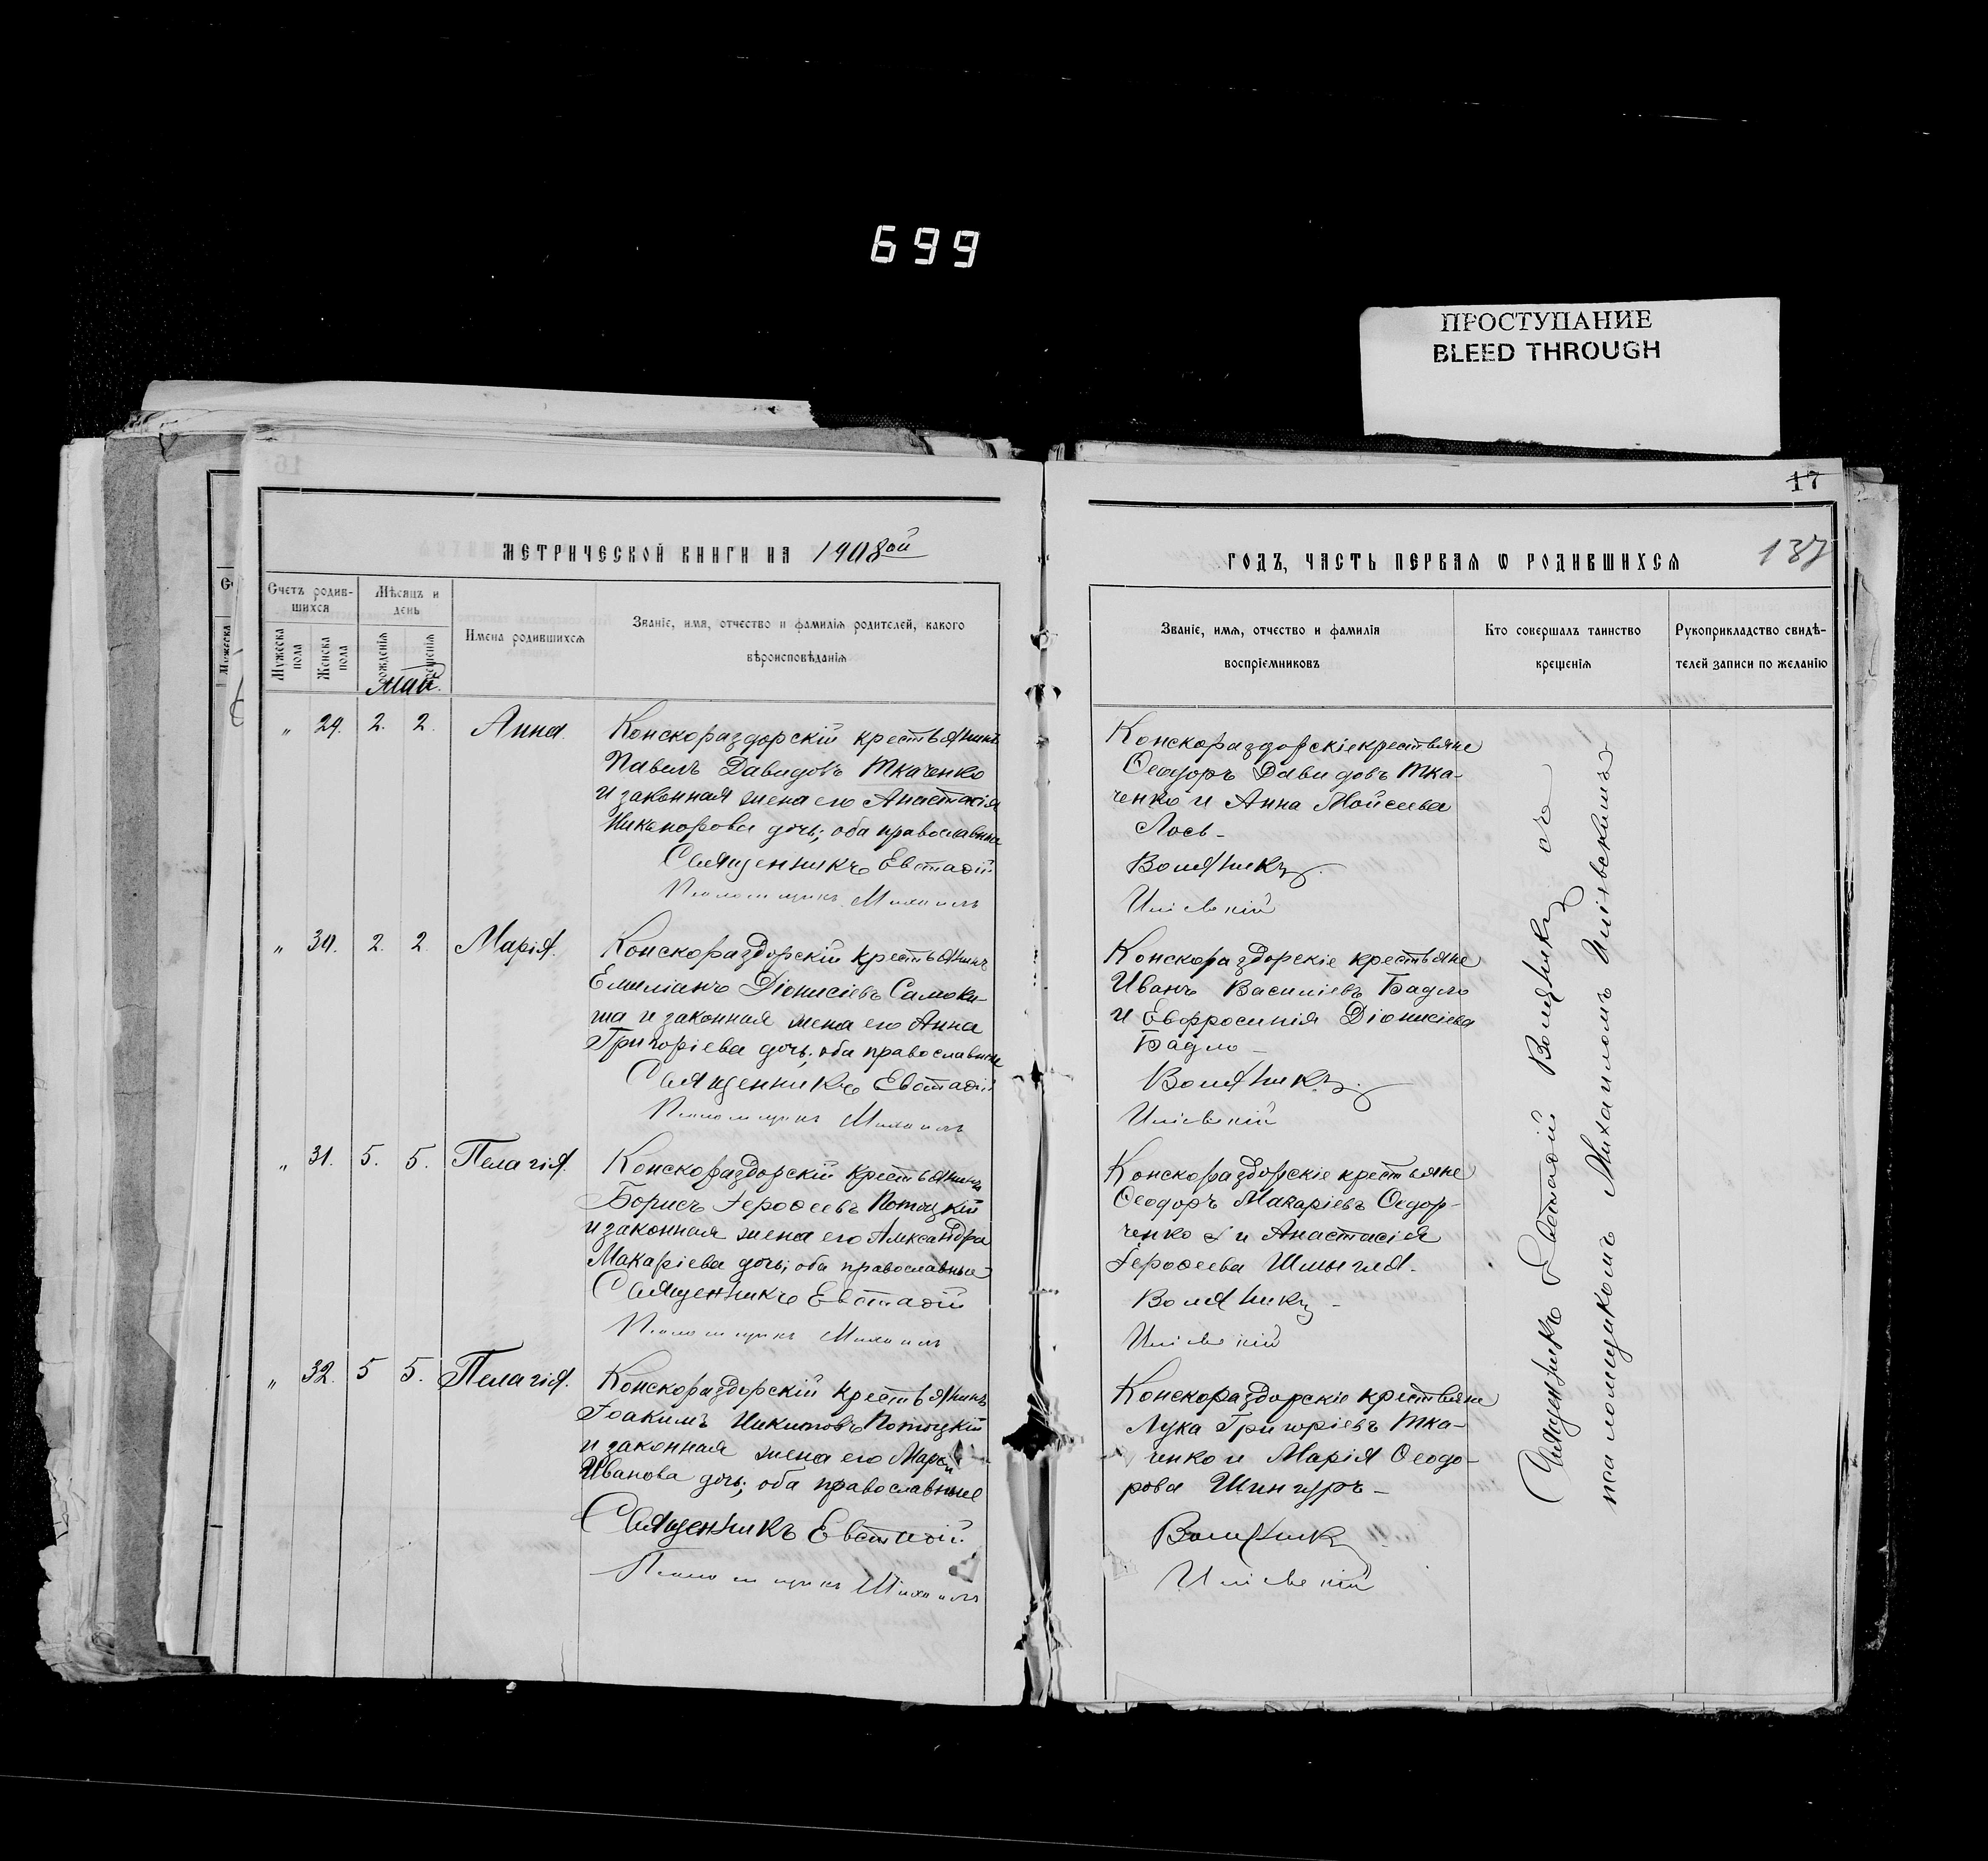 699
ПРОСТУПАНИЕ
BLEED THROUGH
МЕТРИЧЕСКОЙ КНИГИ НА 1908ой
Счетъ родив-
шихся
Мѣсяцъ и
день
Мужеска
пола
Женска
пола
рожденія
крещенія
Май.
Имена родившихся
Званіе, имя, отчество и фамилія родителей, какого
вѣроисповѣданія
„ 29. 2. 2. Анна.
Конскораздорскій крестьянинъ
Павелъ Давидовъ Ткаченко
и законная жена его Анастасія
Никанорова дочь; оба православные
Священникъ Евстафій
Псаломщикъ Михаилъ
„ 30. 2. 2. Марія.
Конскораздорскій крестьянинъ
Емиліанъ Діонисіевъ Самоки-
ша и законная жена его Анна
Григоріева дочь; оба православные
Священникъ Евстафій
Псаломщикъ Михаилъ
„ 31. 5. 5. Пелагія.
Конскораздорскій крестьянинъ
Борисъ Іерофеевъ Потоцкій
и законная жена его Александра
Макаріева дочь; оба православные
Священникъ Евстафій
Псаломщикъ Михаилъ
„ 32. 5 5. Пелагія.
Конскораздорскій крестьянинъ
Іоакимъ Никитовъ Потоцкій
и законная жена его Марія
Иванова дочь; оба православные
Священникъ Евстафій
Псаломщикъ Михаилъ
17
137
ГОДЪ, ЧАСТЬ ПЕРВАЯ Ѡ РОДИВШИХСЯ
Званіе, имя, отчество и фамилія
воспріемниковъ
Кто совершалъ таинство
крещенія
Рукоприкладство свидѣ-
телей записи по желанію
Конскораздорскіе крестьяне
Ѳеодоръ Давидовъ Тка-
ченко и Анна Мойсеева
Лось -
Конскораздорскіе крестьяне
Иванъ Василіевъ Бадло
и Евфросинія Діонисіева
Бадло -
Конскораздорскіе крестьяне
Ѳеодоръ Макаріевъ Ѳедор-
ченко и Анастасія
Іерофеева Шмыгля.
Конскораздорскіе крестьяне
Лука Григоріевъ Тка-
ченко и Марія Ѳеодо-
рова Шингуръ -
Священникъ Евстафій съ
псаломщикомъ Михаиломъ